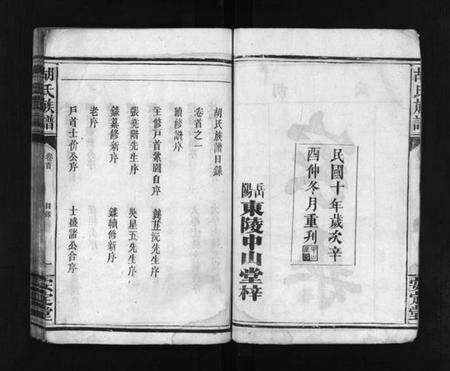 胡氏族譜
民國十年歲次辛
酉仲冬月重刋
岳陽
東陵中山堂梓
胡氏族譜目錄
卷首之一
續修譜序
主修戸首紫園自序
張英階先生序
吳星五先生序
錄嘉修新序
錄續修新序
老序
戸首士价公序
士盛諸公合序
胡氏族譜
卷首
目錄
安定堂